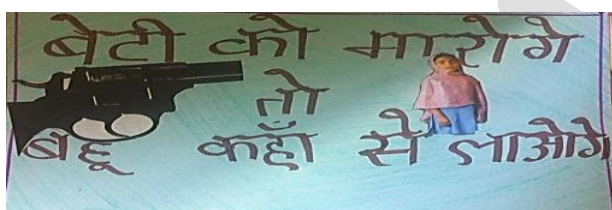 बेटी को मारोगे
तो
बहू कहाँ से लाओगे